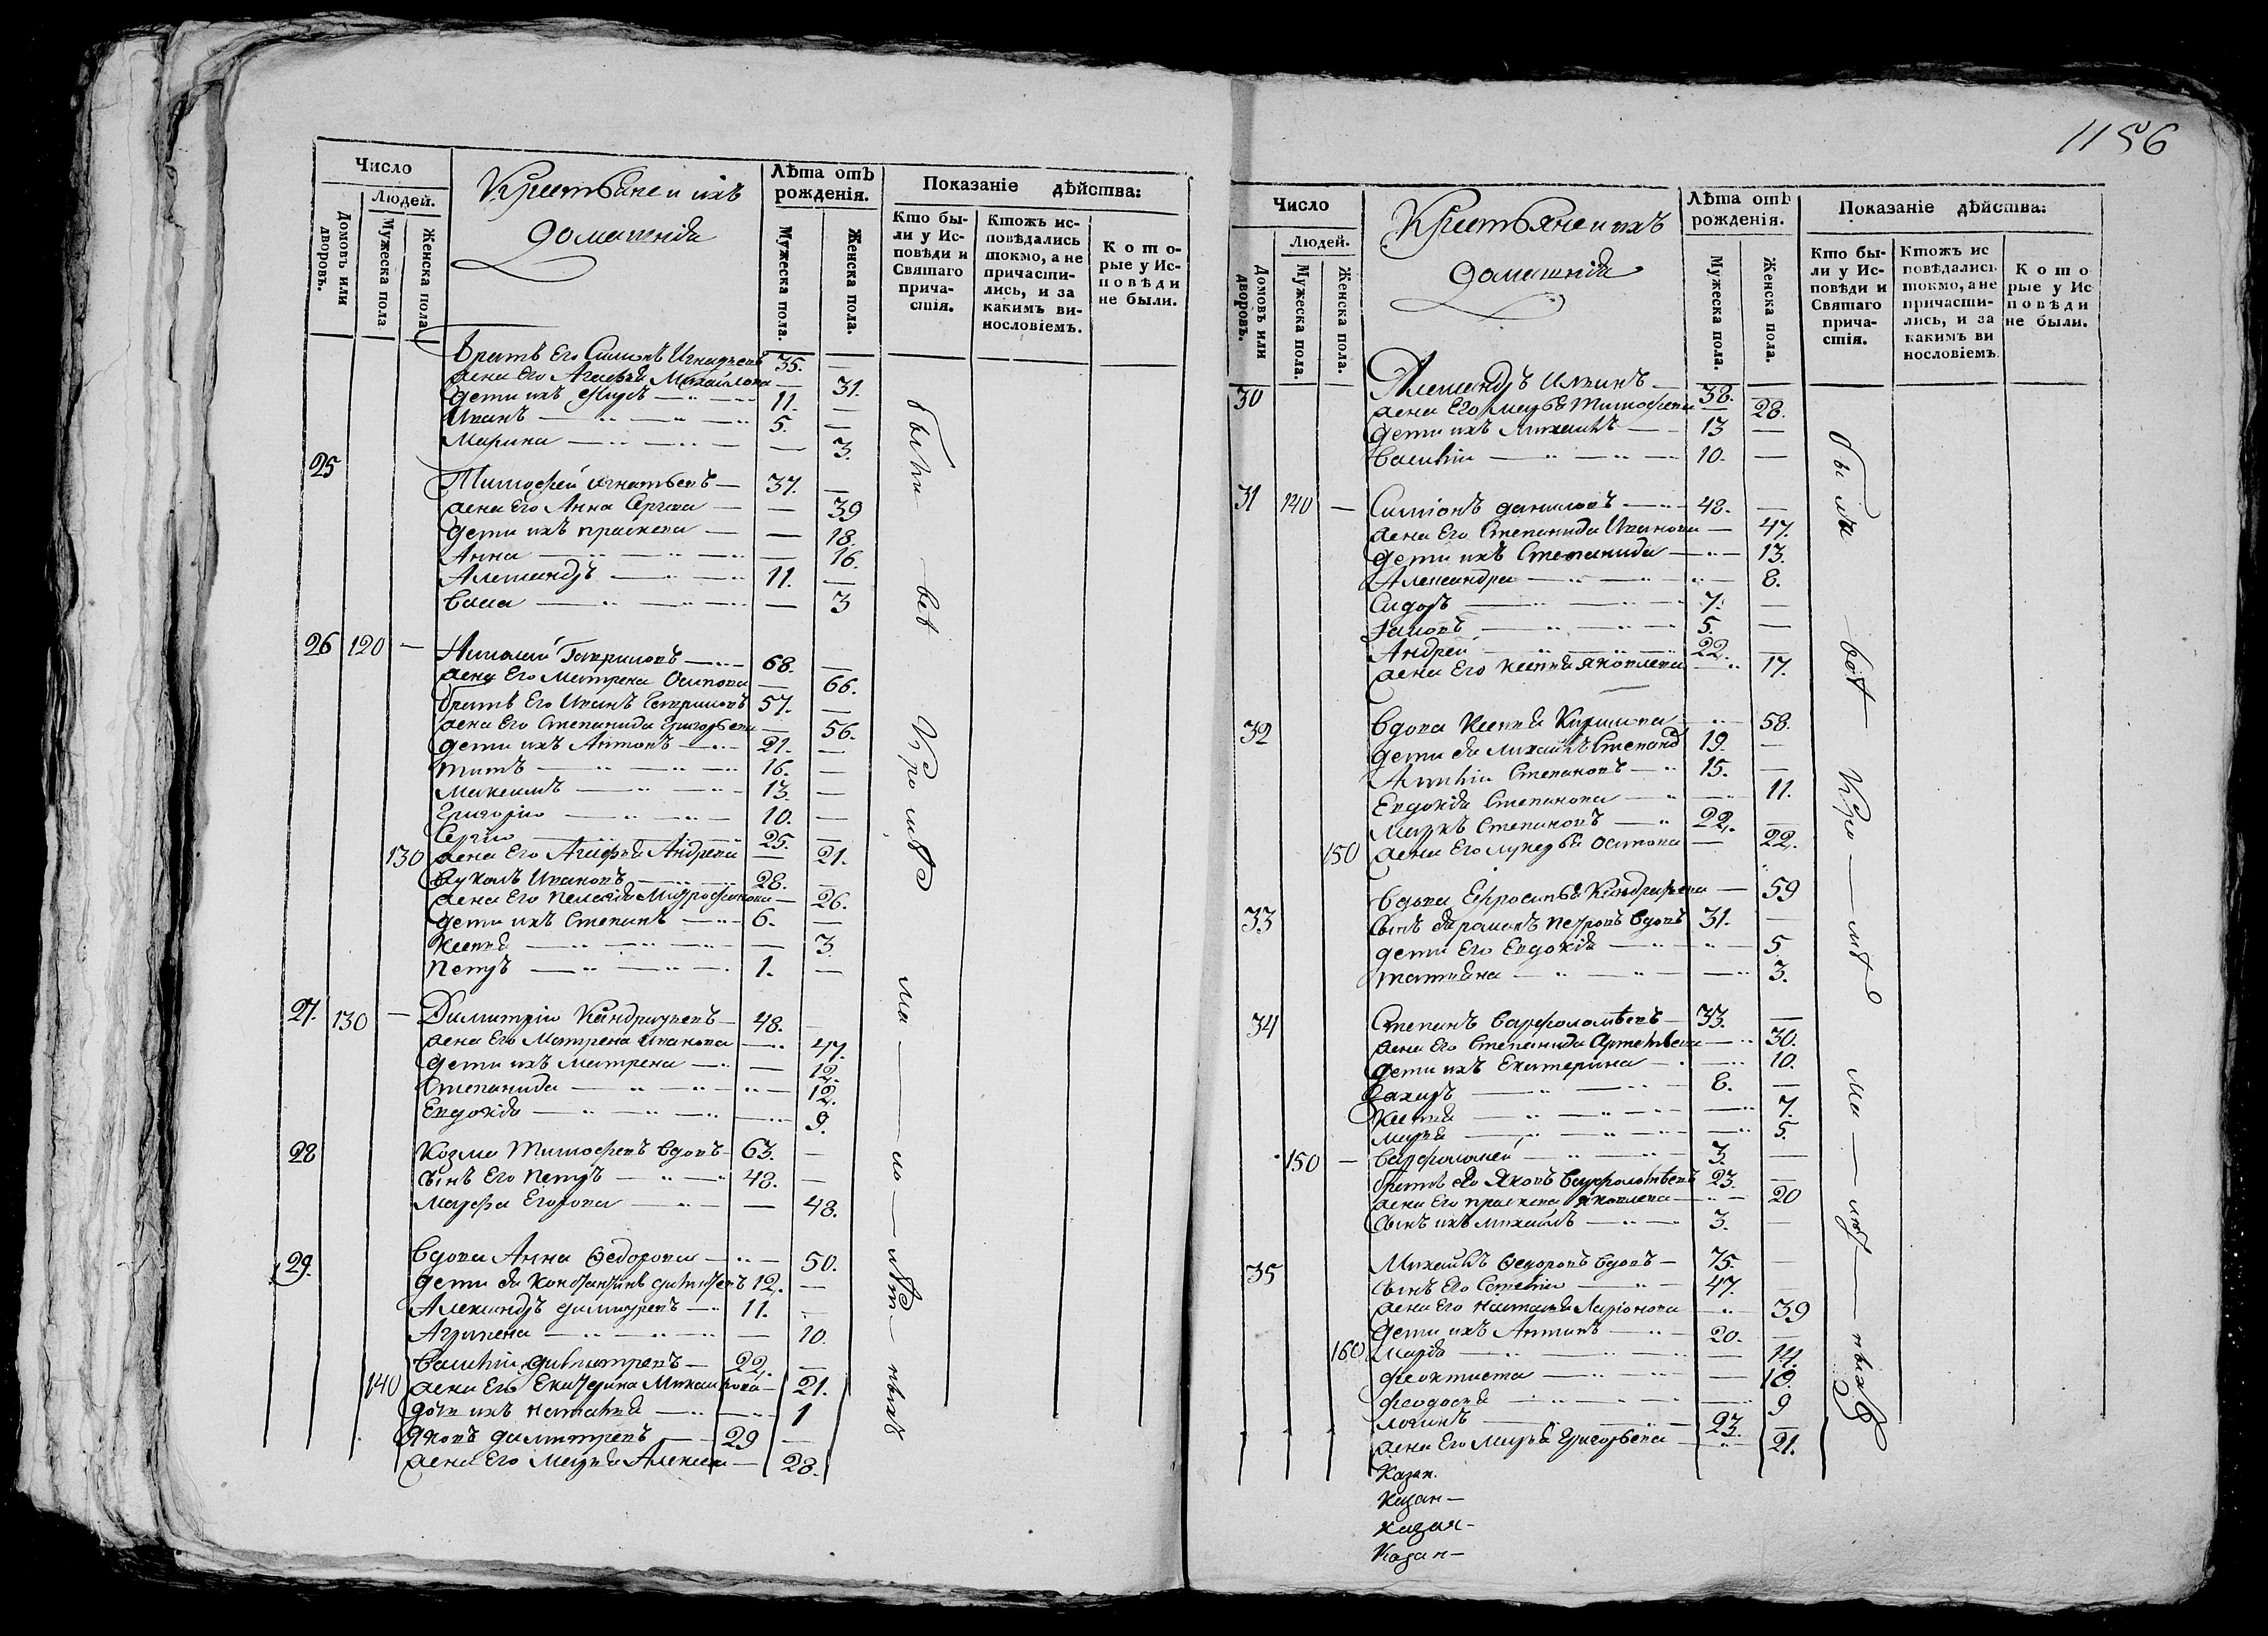 1156
Число
Людей.
Домовъ или дворовъ.
Мужеска пола
Женска пола
Крестьяне и ихъ
домашнія
Лѣта отъ рожденія.
Мужеска пола.
Женска пола.
Показаніе дѣйства:
Кто бы-
ли у Ис-
повѣди и
Святаго
прича-
стія.
Ктожъ ис-
повѣдались
токмо, а не
причасти-
лись, и за
какимъ ви-
нословіемъ.
Кото-
рые у Ис-
повѣди
не были.
братъ Его Симионъ Игнатьевъ 35. —
жена Его Агафья Михайлова — 31.
дети ихъ 11. —
Иванъ 5. —
Марина — 3.
25 Тимофей игнатьевъ 37. —
жена Его Анна Сергеева — 39
дети ихъ праскева — 18.
Анна — 16.
Александръ 11. —
Васса — 3
26 120 — Николай Гавриловъ 68. —
жена Его Матрена Осипова — 66.
братъ Его Иванъ Гавриловъ 57. —
жена Его Степанида Григорьева — 56.
дети ихъ Антонъ 21. —
титъ 16. —
максимъ 13. —
Григорій 10. —
Сергій 25. —
130 жена Его Агафья Андреева — 21.
Ивановъ 28. —
жена Его Пелагія Митрофанова — 26.
дети ихъ Степанъ 6. —
Ксенія — 3.
Петръ 1. —
27. 130 — Димитрій Кондратьевъ 48. —
жена Его Матрена Иванова — 47.
дети ихъ матрена — 12.
Степанида — 12.
Евдокія — 9.
28 Козма Тимофеевъ вдовъ 63. —
сынъ Его Петръ 48. —
Марфа Егорова — 48.
29. Вдова Анна Ѳедорова — 50.
дети ея Константинъ димитревъ 12. —
Александръ димитревъ 11. —
Агрипена — 10.
Василій димитревъ 22. —
140 жена Его Екатерина Михайлова — 21.
дочь ихъ Наталья — 1
Яковъ димитревъ 29 —
жена Его Марья Алексеева — 28.
были всѣ
Число
Людей.
Домовъ или дворовъ.
Мужеска пола.
Женска пола.
Крестьяне и ихъ
домашнія
Лѣта отъ рожденія.
Мужеска пола.
Женска пола.
Показаніе дѣйства:
Кто бы-
ли у Ис-
повѣди и
Святаго
прича-
стія.
Ктожъ ис
повѣдались
токмо, а не
причасти-
лись, и за
какимъ ви
нословіемъ.
Кото
рые у Ис
повѣди
не были.
30 Александръ Ильинъ 38. —
жена Его Марья Тимофеева — 28.
дети ихъ Михаилъ 13 —
Василій 10. —
31 140 — Симіонъ даниловъ 48. —
жена Его Степанида Иванова — 47.
дети ихъ Степанида — 13.
Александра — 8.
Сидоръ 7. —
5. —
Андрей 22. —
жена Его Ксенія Яковлева — 17.
32 вдова Ксенія Кирилова 58.
дети ея михаилъ Степановъ 19. —
Степановъ 15. —
Евдокія Степанова 11.
Маркъ Степановъ 22. —
150 жена Его лукерья Осипова — 22.
33 вдова Ефросинья Кондратьева — 59
сынъ ея романъ Петровъ вдовъ 31. —
дети Его Евдокія 5.
татьяна 3.
34 Степанъ Варфоломѣевъ 33. —
жена Его Степанида Артемьева 30.
дети ихъ Екатерина 10.
Захаръ 8. —
Ксенія 7.
Марья 5.
150 — Варфоломей 3. —
братъ его Яковъ Варфоломѣевъ 23. —
жена Его праскева яковлева 20
сынъ ихъ михаилъ 3. —
35 Михаилъ Ѳедоровъ вдовъ 75. —
сынъ Его Савелій 47. —
жена Его Наталья Ларіонова 39
дети ихъ Антонъ 20. —
160 Марія — 14.
феоктиста — 10.
феодосья 9
логинъ 23. —
жена Его Марья Григорьева 21.
были всѣ
Казан.
Казан—
казан—
Казан—